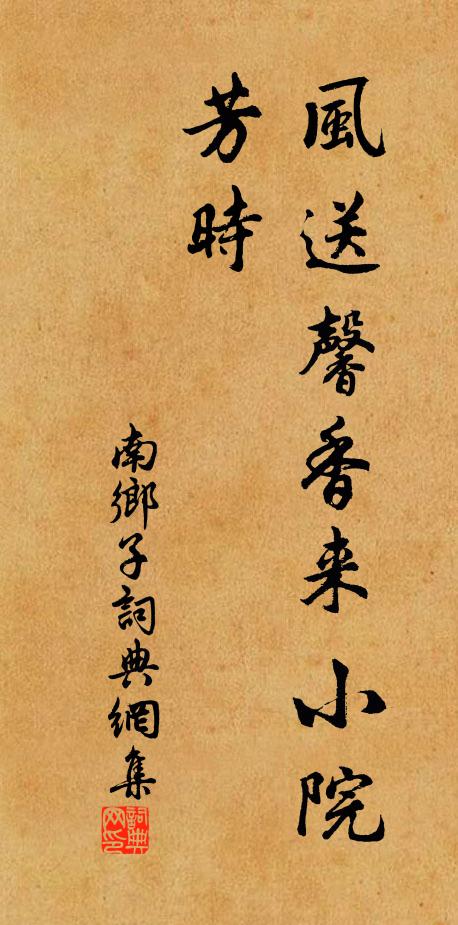 風送馨香来小院
芳時
南鄉子詞典網集
詞典
网印